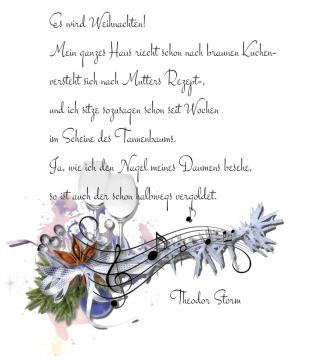 Es wird Weihnachten!
Mein ganzes Haus riecht schon nach braunen Kuchen-
versteht sich nach Mutters Rezept-,
und ich sitze sozusagen schon seit Wochen
im Scheine des Tannenbaums.
Ja, wie ich den Nagel meines Daumens besehe,
so ist auch der schon halbwegs vergoldet.
Theodor Storm